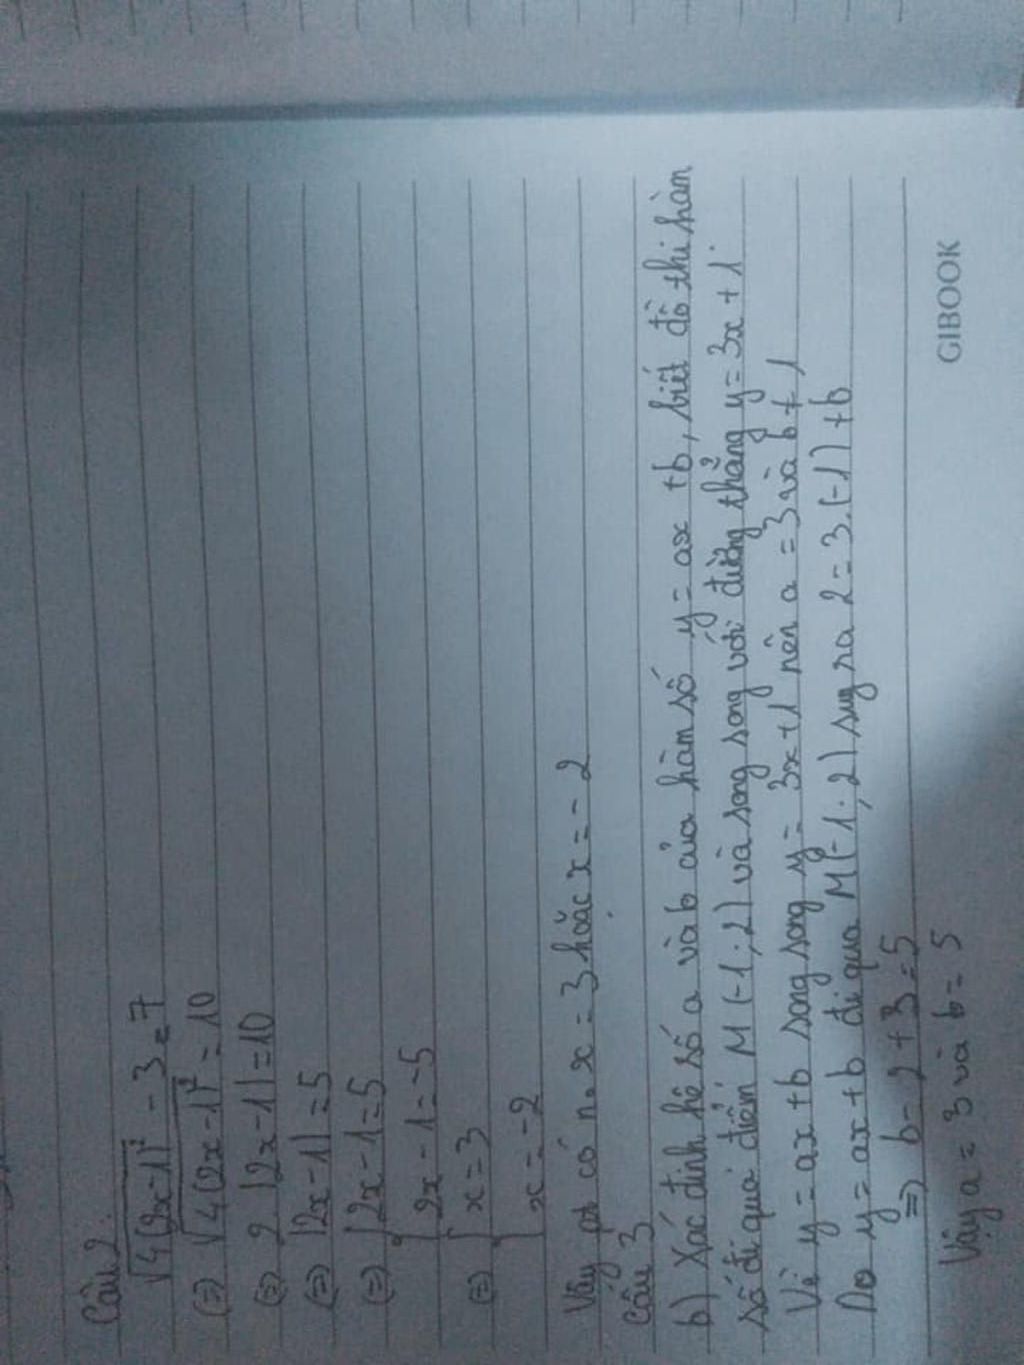 Câu 2:
√4(2x-1)² - 3 = 7
(=) √4(2x-1)² = 10
(=) 2 |2x-1| = 10
(=) |2x-1| = 5
(=) [2x-1=5
[2x-1=-5
(=) [x=3
[x=-2
Vậy pt có n₀ x = 3 hoặc x = -2
Câu 3
b) Xác định hệ số a và b của hàm số y = ax +b, biết đồ thi hàm
số đi qua điểm M (-1; 2) và song song với đường thẳng y = 3x + 1.
Vì y = ax + b song song y = 3x+1 nên a = 3 và b ≠ 1
Do y = ax + b đi qua M(-1; 2) suy ra 2 = 3.(-1) + b
=) b = 2 + 3 = 5
Vậy a = 3 và b = 5
GIBOOK